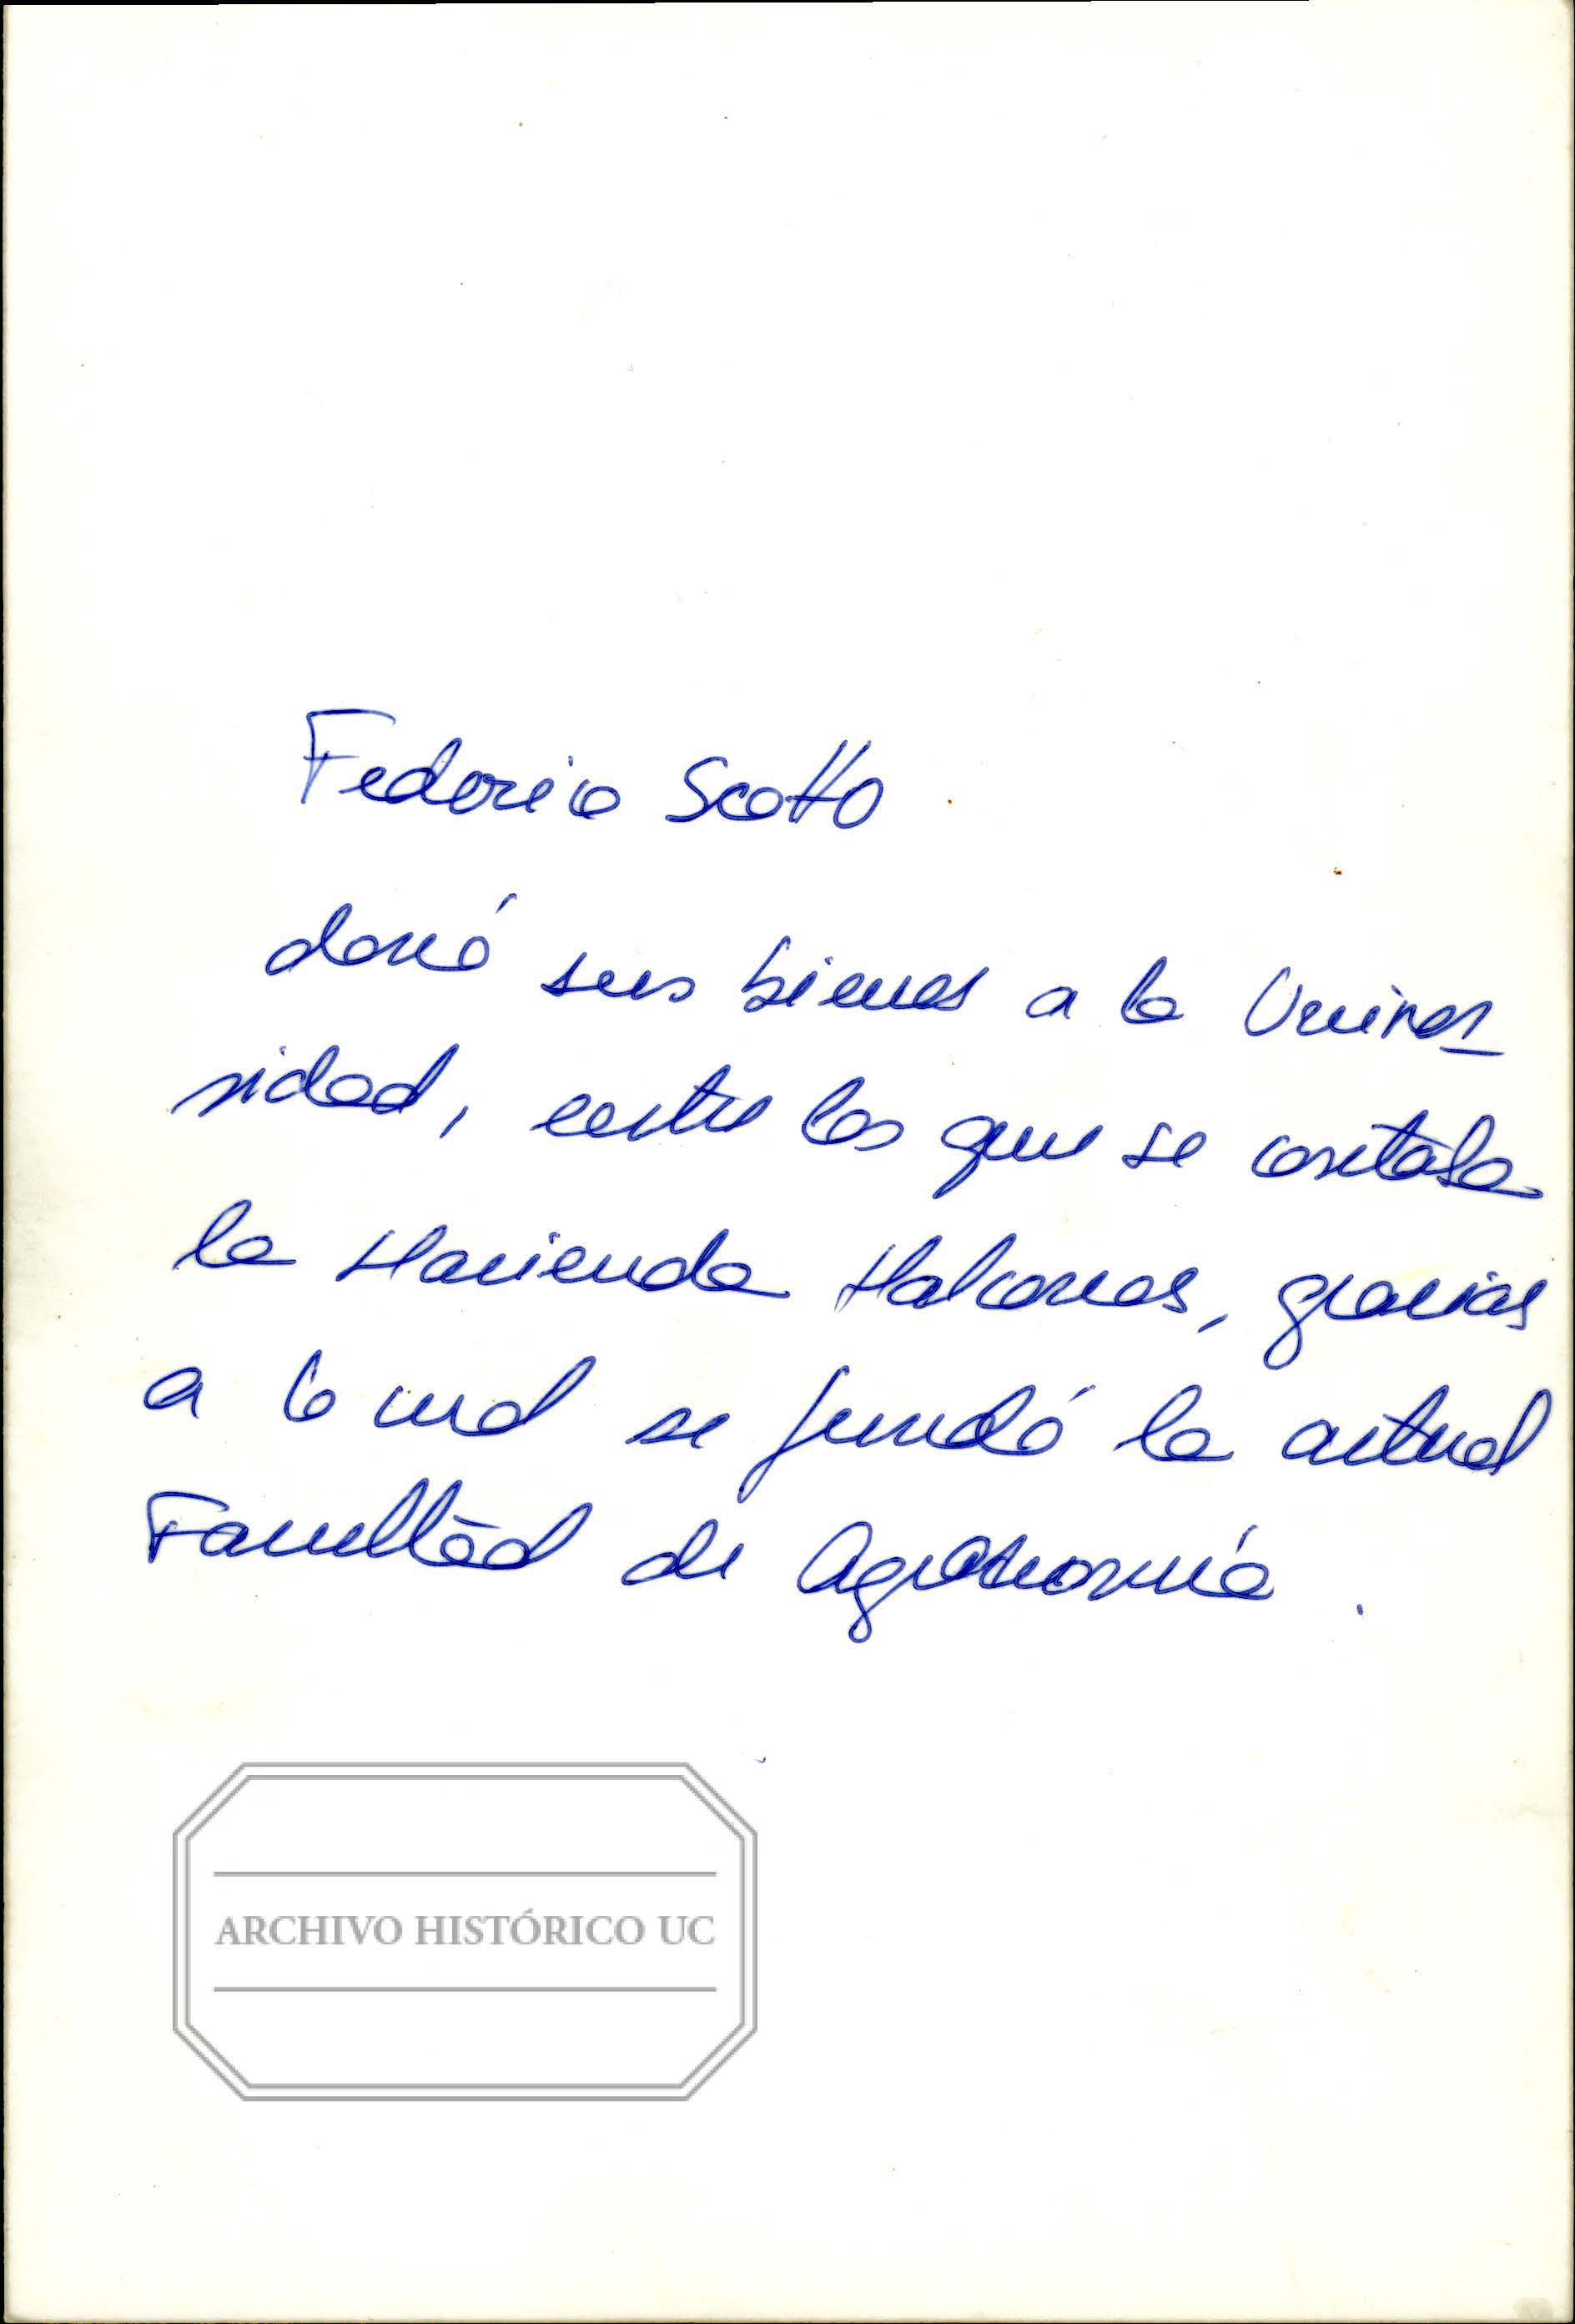 Federico Scotto
donó sus bienes a la Univer
sidad, entre los que se contaba
la Hacienda Halcones, gracias
a lo cual se fundó la actual
Facultad de Agronomía.
ARCHIVO HISTÓRICO UC